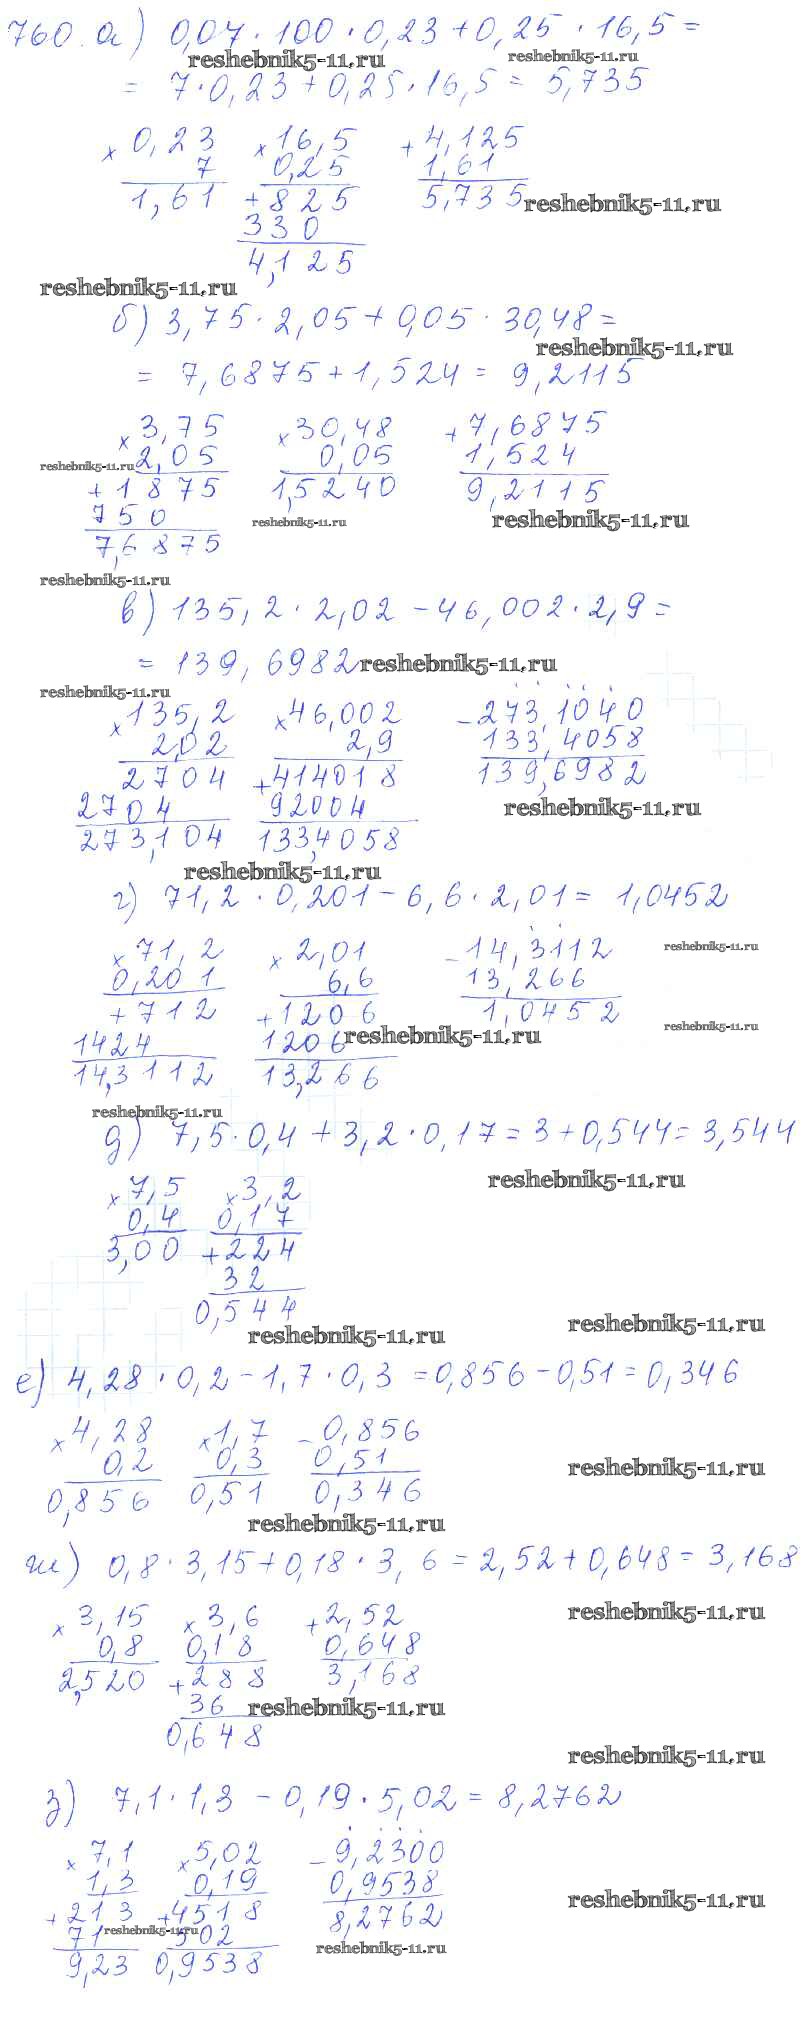 760. а) 0,07 · 100 · 0,23 + 0,25 · 16,5 =
reshebnik5-11.ru reshebnik5-11.ru
= 7 · 0,23 + 0,25 · 16,5 = 5,735
× 0,23 × 16,5 + 4,125
7 0,25 1,61
1,61 + 825 5,735 reshebnik5-11.ru
330
4,125
reshebnik5-11.ru
б) 3,75 · 2,05 + 0,05 · 30,48 =
reshebnik5-11.ru
= 7,6875 + 1,524 = 9,2115
× 3,75 × 30,48 + 7,6875
reshebnik5-11.ru 2,05 0,05 1,524
+ 1875 1,5240 9,2115
750 reshebnik5-11.ru reshebnik5-11.ru
7,6875
reshebnik5-11.ru
в) 135,2 · 2,02 - 46,002 · 2,9 =
= 139,6982 reshebnik5-11.ru
reshebnik5-11.ru
× 135,2 × 46,002 - 273,1040
2,02 2,9 133,4058
2704 + 414018 139,6982
2704 92004 reshebnik5-11.ru
273,104 133,4058
reshebnik5-11.ru
г) 71,2 · 0,201 - 6,6 · 2,01 = 1,0452
× 71,2 × 2,01 - 14,3112 reshebnik5-11.ru
0,201 6,6 13,266
+ 712 + 1206 1,0452
reshebnik5-11.ru
1424 1206 reshebnik5-11.ru
14,3112 13,266
reshebnik5-11.ru
д) 7,5 · 0,4 + 3,2 · 0,17 = 3 + 0,544 = 3,544
reshebnik5-11.ru
× 7,5 × 3,2
0,4 0,17
3,00 + 224
32
0,544
reshebnik5-11.ru reshebnik5-11.ru
е) 4,28 · 0,2 - 1,7 · 0,3 = 0,856 - 0,51 = 0,346
× 4,28 × 1,7 - 0,856
0,2 0,3 0,51 reshebnik5-11.ru
0,856 0,51 0,346
reshebnik5-11.ru
ж) 0,8 · 3,15 + 0,18 · 3,6 = 2,52 + 0,648 = 3,168
× 3,15 × 3,6 + 2,52 reshebnik5-11.ru
0,8 0,18 0,648
2,520 + 288 3,168
36 reshebnik5-11.ru
0,648
reshebnik5-11.ru
з) 7,1 · 1,3 - 0,19 · 5,02 = 8,2762
× 7,1 × 5,02 - 9,2300
1,3 0,19 0,9538 reshebnik5-11.ru
+ 213 + 4518 8,2762
71 reshebnik5-11.ru 502
9,23 0,9538 reshebnik5-11.ru